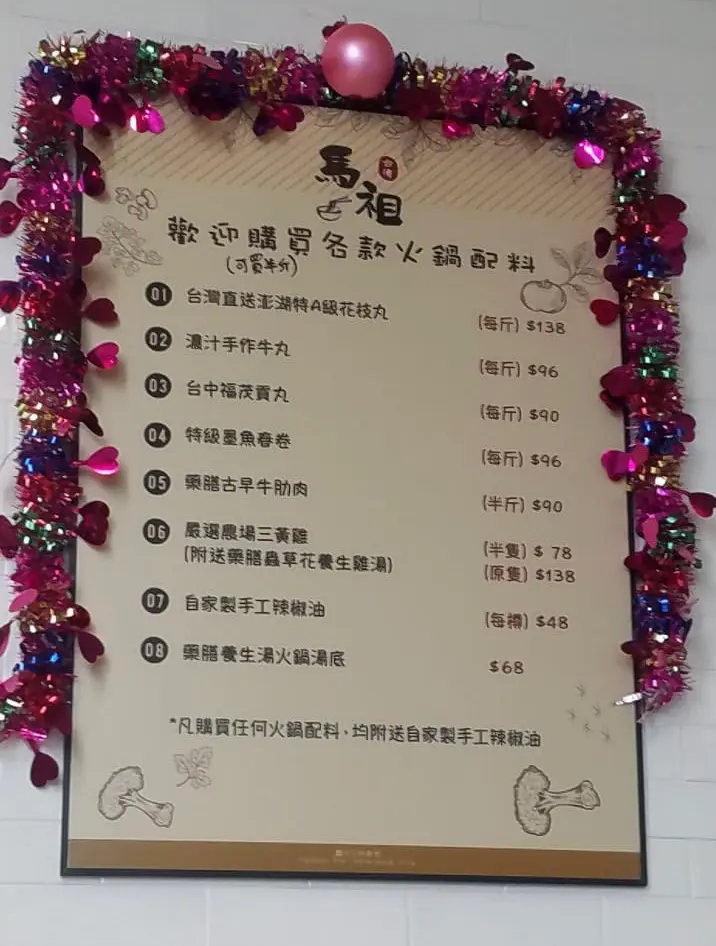 馬祖
台灣
歡迎購買各款火鍋配料
(可買半斤)
01 台灣直送澎湖特A級花枝丸 (每斤) $138
02 濃汁手作牛丸 (每斤) $96
03 台中福茂貢丸 (每斤) $90
04 特級墨魚春卷 (每斤) $96
05 藥膳古早牛肋肉 (半斤) $90
06 嚴選農場三黃雞 (半隻) $ 78
(附送藥膳蟲草花養生雞湯) (原隻) $138
07 自家製手工辣椒油 (每樽) $48
08 藥膳養生湯火鍋湯底 $68
*凡購買任何火鍋配料，均附送自家製手工辣椒油